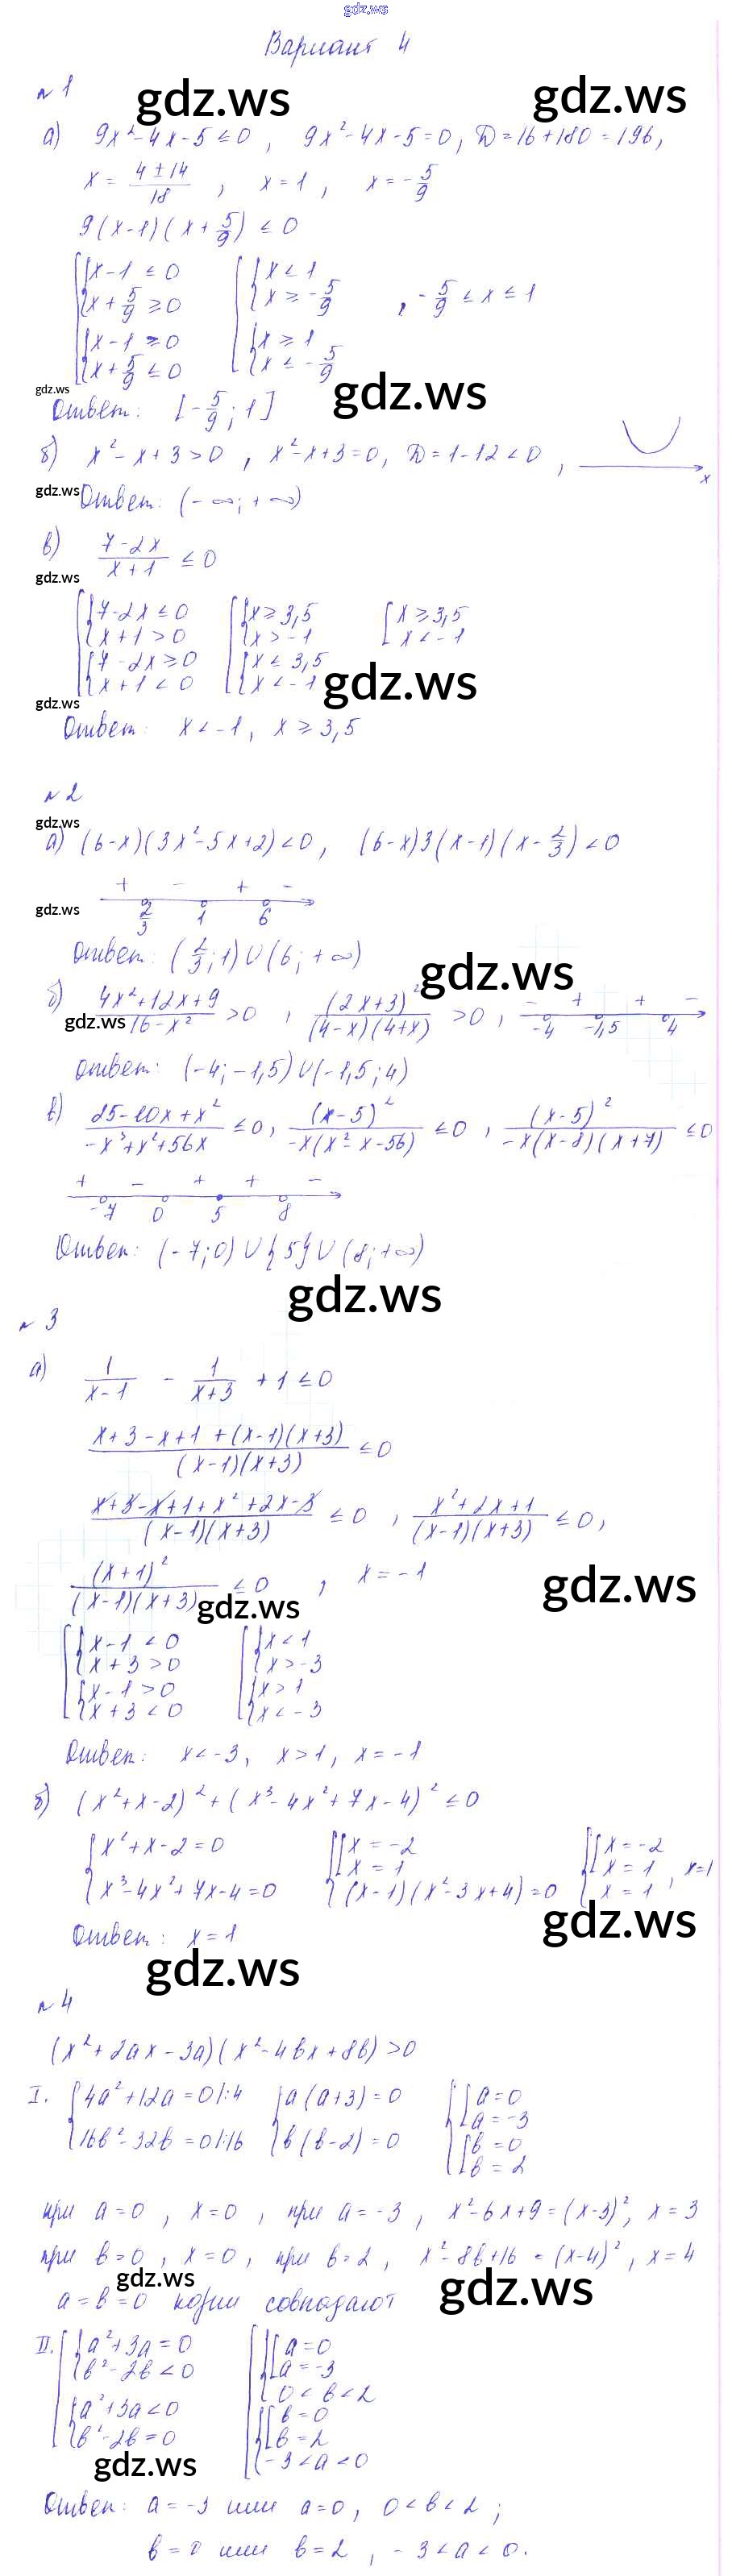 gdz.ws
Вариант 4
№1
gdz.ws gdz.ws
а) 9x²-4x-5≤0, 9x²-4x-5=0, D=16+180=196,
x = (4±14)/18, x=1, x=-5/9
9(x-1)(x+5/9) ≤0
x-1 ≤0 x<1
x+5/9 ≥0 x≥-5/9 , -5/9 ≤ x ≤ 1
x-1 ≥0 x≥1
x+5/9 ≤0 x≤-5/9
gdz.ws gdz.ws
Ответ: [-5/9; 1]
б) x²-x+3>0, x²-x+3=0, D=1-12<0, x
gdz.ws Ответ: (-∞; +∞)
в) (7-2x)/(x+1) ≤0
gdz.ws
7-2x≤0 x≥3,5 x≥3,5
x+1>0 x>-1 x<-1
7-2x≥0 x≤3,5
x+1<0 x<-1
gdz.ws gdz.ws
Ответ: x<-1, x≥3,5
№2
gdz.ws
а) (6-x)(3x²-5x+2)<0, (6-x)3(x-1)(x-2/3)<0
+ - + -
gdz.ws 2/3 1 6
Ответ: (2/3; 1)∪(6; +∞)
gdz.ws
б) (4x²+12x+9)/(16-x²) >0, (2x+3)²/((4-x)(4+x)) >0, - + + -
gdz.ws -4 -1,5 4
Ответ: (-4; -1,5)∪(-1,5; 4)
в) (25-10x+x²)/(-x³+x²+56x) ≤0, (x-5)²/(-x(x²-x-56)) ≤0, (x-5)²/(-x(x-8)(x+7)) ≤0
+ - + + -
-7 0 5 8
Ответ: (-7; 0)∪{5}∪(8; +∞)
gdz.ws
№3
а) 1/(x-1) - 1/(x+3) +1≤0
(x+3-x+1+(x-1)(x+3))/((x-1)(x+3)) ≤0
(x+3-x+1+x²+2x-3)/((x-1)(x+3)) ≤0, (x²+2x+1)/((x-1)(x+3)) ≤0,
(x+1)²/((x-1)(x+3)) ≤0, x=-1
gdz.ws gdz.ws
x-1<0 x<1
x+3>0 x>-3
x-1>0 x>1
x+3<0 x<-3
Ответ: x<-3, x>1, x=-1
б) (x²+x-2)²+(x³-4x²+7x-4)²≤0
x²+x-2=0 x=-2 x=-2
x=1 x=1 , x=1
x³-4x²+7x-4=0 (x-1)(x²-3x+4)=0 x=1
gdz.ws
Ответ: x=1
gdz.ws
№4
(x²+2ax-3a)(x²-4bx+8b)>0
I. 4a²+12a=0|:4 a(a+3)=0 a=0
a=-3
16b²-32b=0|:16 b(b-2)=0 b=0
b=2
при a=0, x=0, при a=-3, x²-6x+9=(x-3)², x=3
при b=0, x=0, при b=2, x²-8b+16=(x-4)², x=4
gdz.ws gdz.ws
a=b=0 корни совпадают
II. a²+3a=0 a=0
b²-2b<0 a=-3
0<b<2
a²+3a<0 b=0
b²-2b=0 b=2
-3<a<0
gdz.ws
Ответ: a=-3 или a=0, 0<b<2;
b=0 или b=2, -3<a<0.